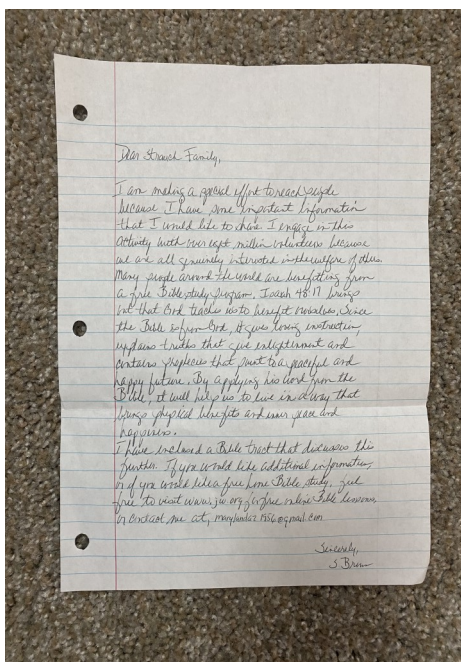 Dear Strauch Family,
I am making a special effort to reach people
because I have some important information
that I would like to share. I engage in this
activity with over eight million volunteers because
we are all genuinely interested in the welfare of others.
Many people around the world are benefitting from
a free Bible study program. Isaiah 48:17 brings
out that God teaches us to benefit ourselves. Since
the Bible is from God, it gives loving instruction,
explains truths that give enlightenment and
contains prophecies that point to a peaceful and
happy future. By applying his word from the
Bible, it will help us to live in a way that
brings physical benefits and inner peace and
happiness.
I have inclosed a Bible tract that discusses this
further. If you would like additional information,
or if you would like a free home Bible study, feel
free to visit www.jw.org for free online Bible lessons,
or contact me at, @gmail.com
Sincerely,
S. Brown